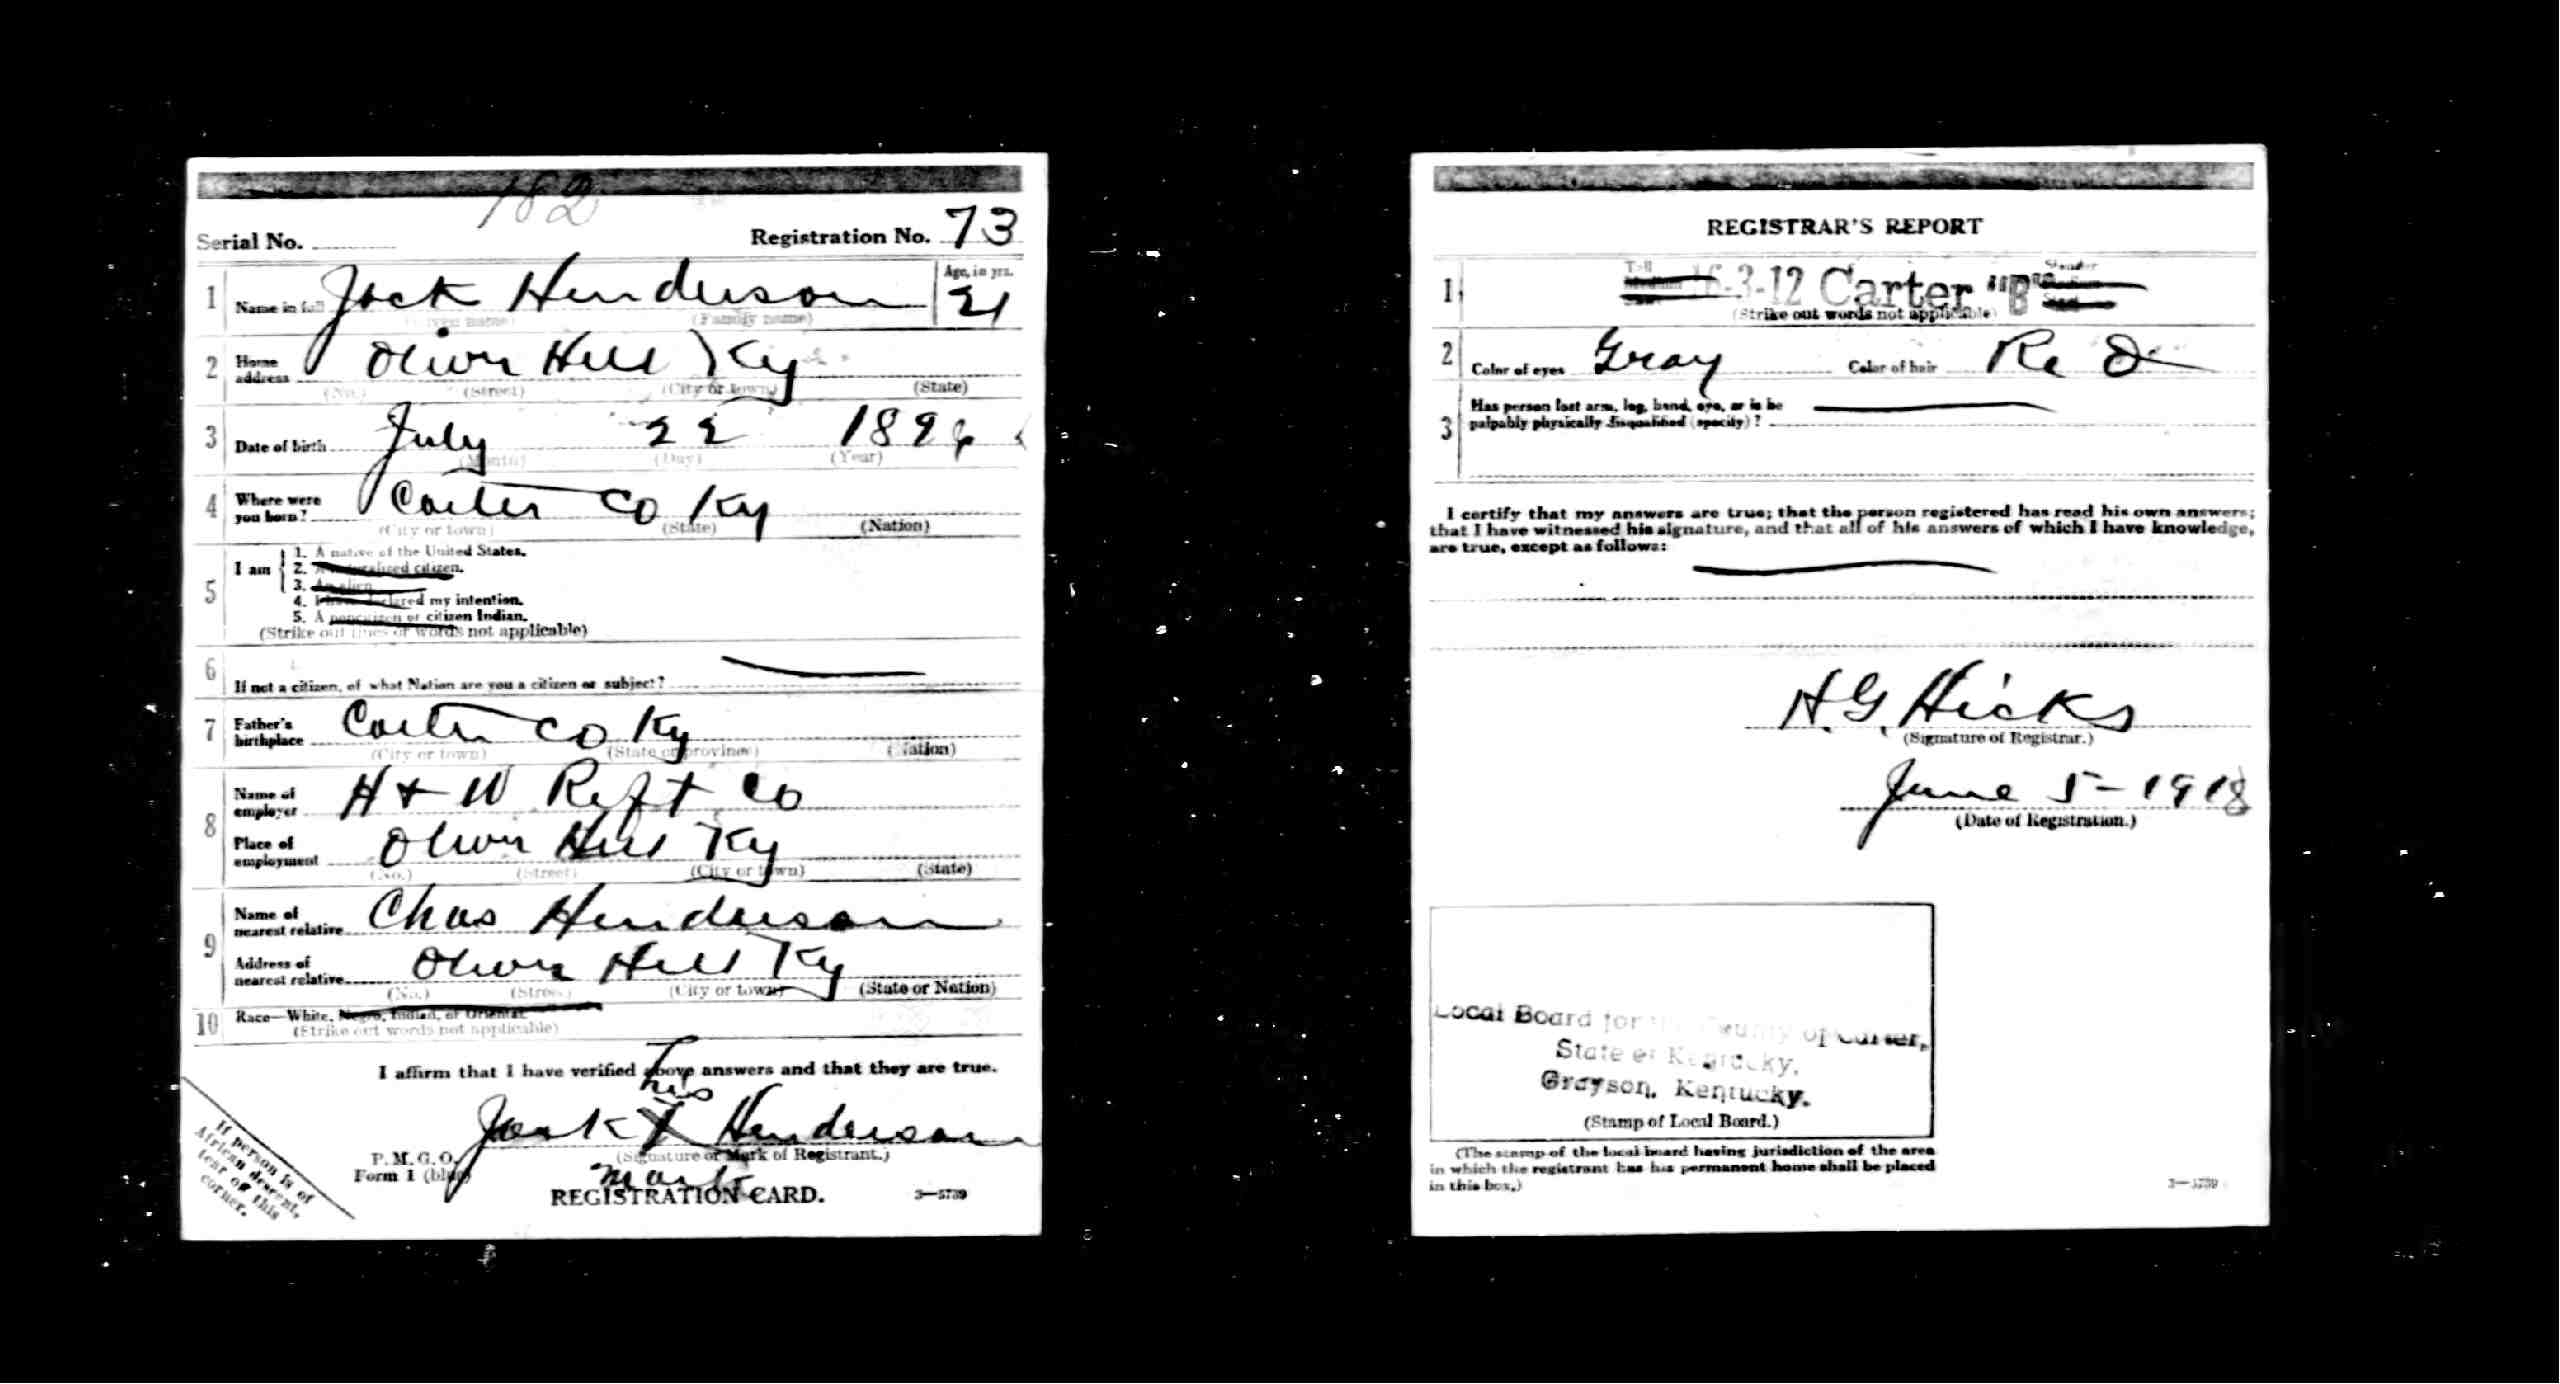 182
Serial No. Registration No. 73
1 Name in full Jack Henderson Age, in yrs. 21
(Given name) (Family name)
2 Home address Olive Hill Ky
(No.) (Street) (City or town) (State)
3 Date of birth July 22 189
(Month) (Day) (Year)
4 Where were you born? Carter Co Ky
(City or town) (State) (Nation)
5 I am
1. A native of the United States.
2. A naturalized citizen.
3. An alien
4. I have declared my intention.
5. A noncitizen or citizen Indian.
(Strike out lines or words not applicable)
6 If not a citizen, of what Nation are you a citizen or subject?
7 Father's birthplace Carter Co Ky
(City or town) (State or province) (Nation)
8 Name of employer H + W Reft Co
Place of employment Olive Hill Ky
(No.) (Street) (City or town) (State)
9 Name of nearest relative Chas Henderson
Address of nearest relative Olive Hill Ky
(No.) (Street) (City or town) (State or Nation)
10 Race—White, Negro, Indian, or Oriental.
(Strike out words not applicable)
I affirm that I have verified above answers and that they are true.
his
Jack X Henderson
(Signature or Mark of Registrant.)
mark
P. M. G. O.
Form 1 (blue)
REGISTRATION CARD. 3—5739
If person is of
African descent,
tear off this
corner.
REGISTRAR'S REPORT
1 Tall Slender
16-3-12 Carter "B"
(Strike out words not applicable)
2 Color of eyes Gray Color of hair Red
3 Has person lost arm, leg, hand, eye, or is he
palpably physically disqualified (specify)?
I certify that my answers are true; that the person registered has read his own answers;
that I have witnessed his signature, and that all of his answers of which I have knowledge,
are true, except as follows:
H. G. Hicks
(Signature of Registrar.)
June 5 - 1918
(Date of Registration.)
Local Board for the County of Carter,
State of Kentucky,
Grayson, Kentucky.
(Stamp of Local Board.)
(The stamp of the local board having jurisdiction of the area
in which the registrant has his permanent home shall be placed
in this box.)
3—5739